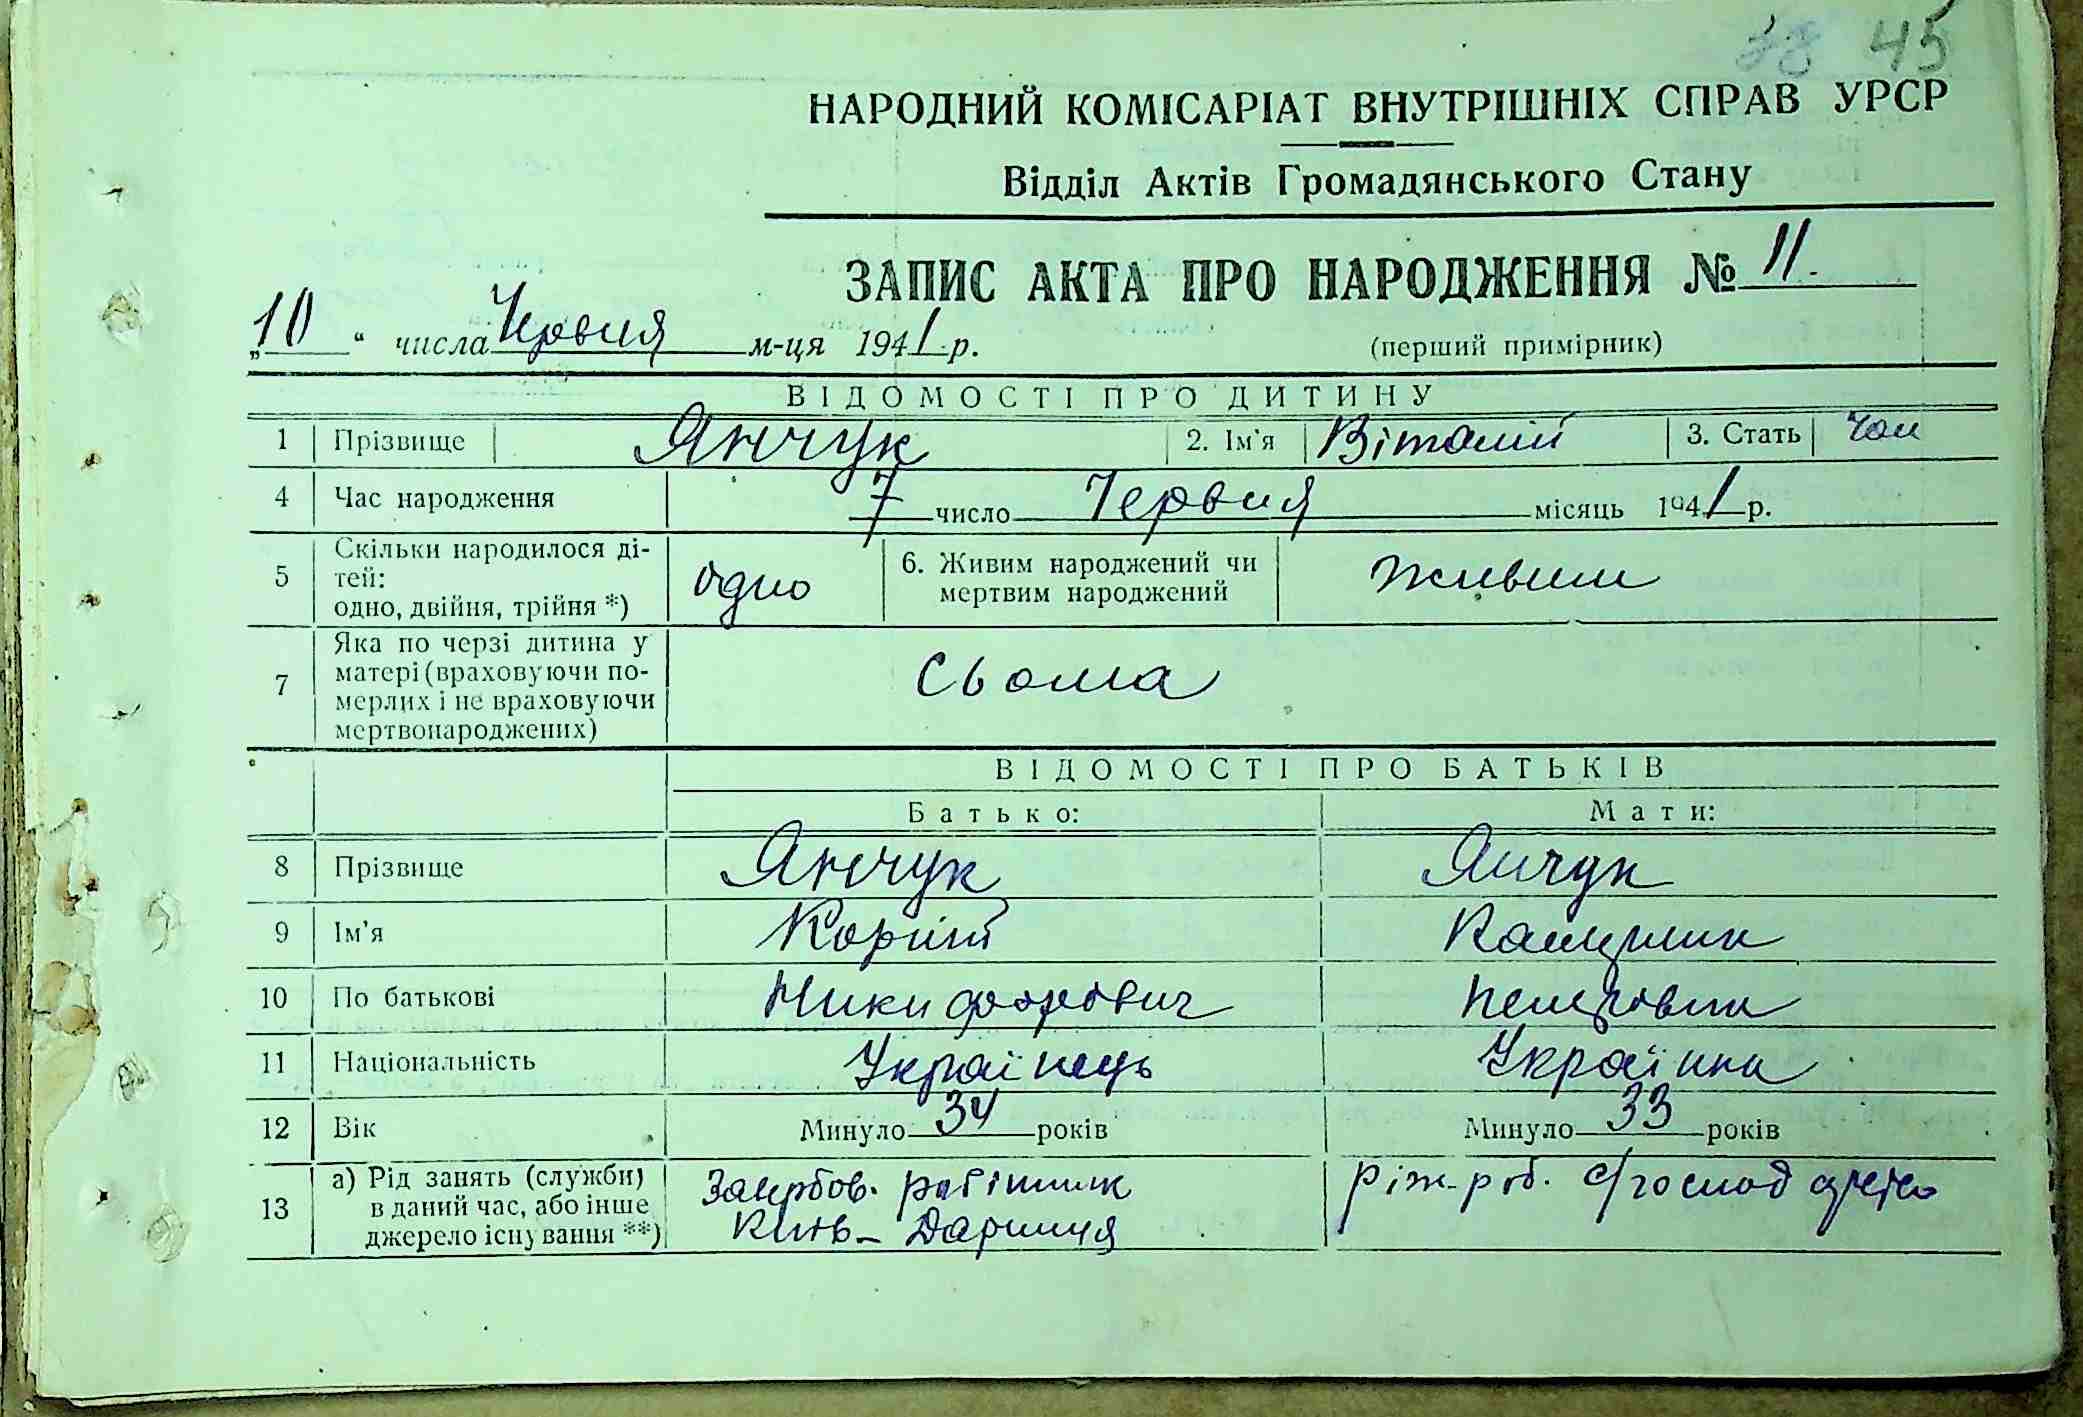 45
НАРОДНИЙ КОМІСАРІАТ ВНУТРІШНІХ СПРАВ УРСР
Відділ Актів Громадянського Стану
ЗАПИС АКТА ПРО НАРОДЖЕННЯ № 11.
„10“ числа Червня м-ця 1941 р. (перший примірник)
ВІДОМОСТІ ПРО ДИТИНУ
1 Прізвище Янчук 2. Ім'я Віталій 3. Стать Чол
4 Час народження 7 число Червня місяць 1941 р.
5 Скільки народилося ді-
тей:
одно, двійня, трійня *) одно 6. Живим народжений чи
мертвим народжений Живим
7 Яка по черзі дитина у
матері (враховуючи по-
мерлих і не враховуючи
мертвонароджених) Сьома
ВІДОМОСТІ ПРО БАТЬКІВ
Батько: Мати:
8 Прізвище Янчук Янчук
9 Ім'я
10 По батькові Никифорович
11 Національність Українець Українка
12 Вік Минуло 34 років Минуло 33 років
13 а) Рід занять (служби)
в даний час, або інше
джерело існування **) робітник
Київ - Дарниця